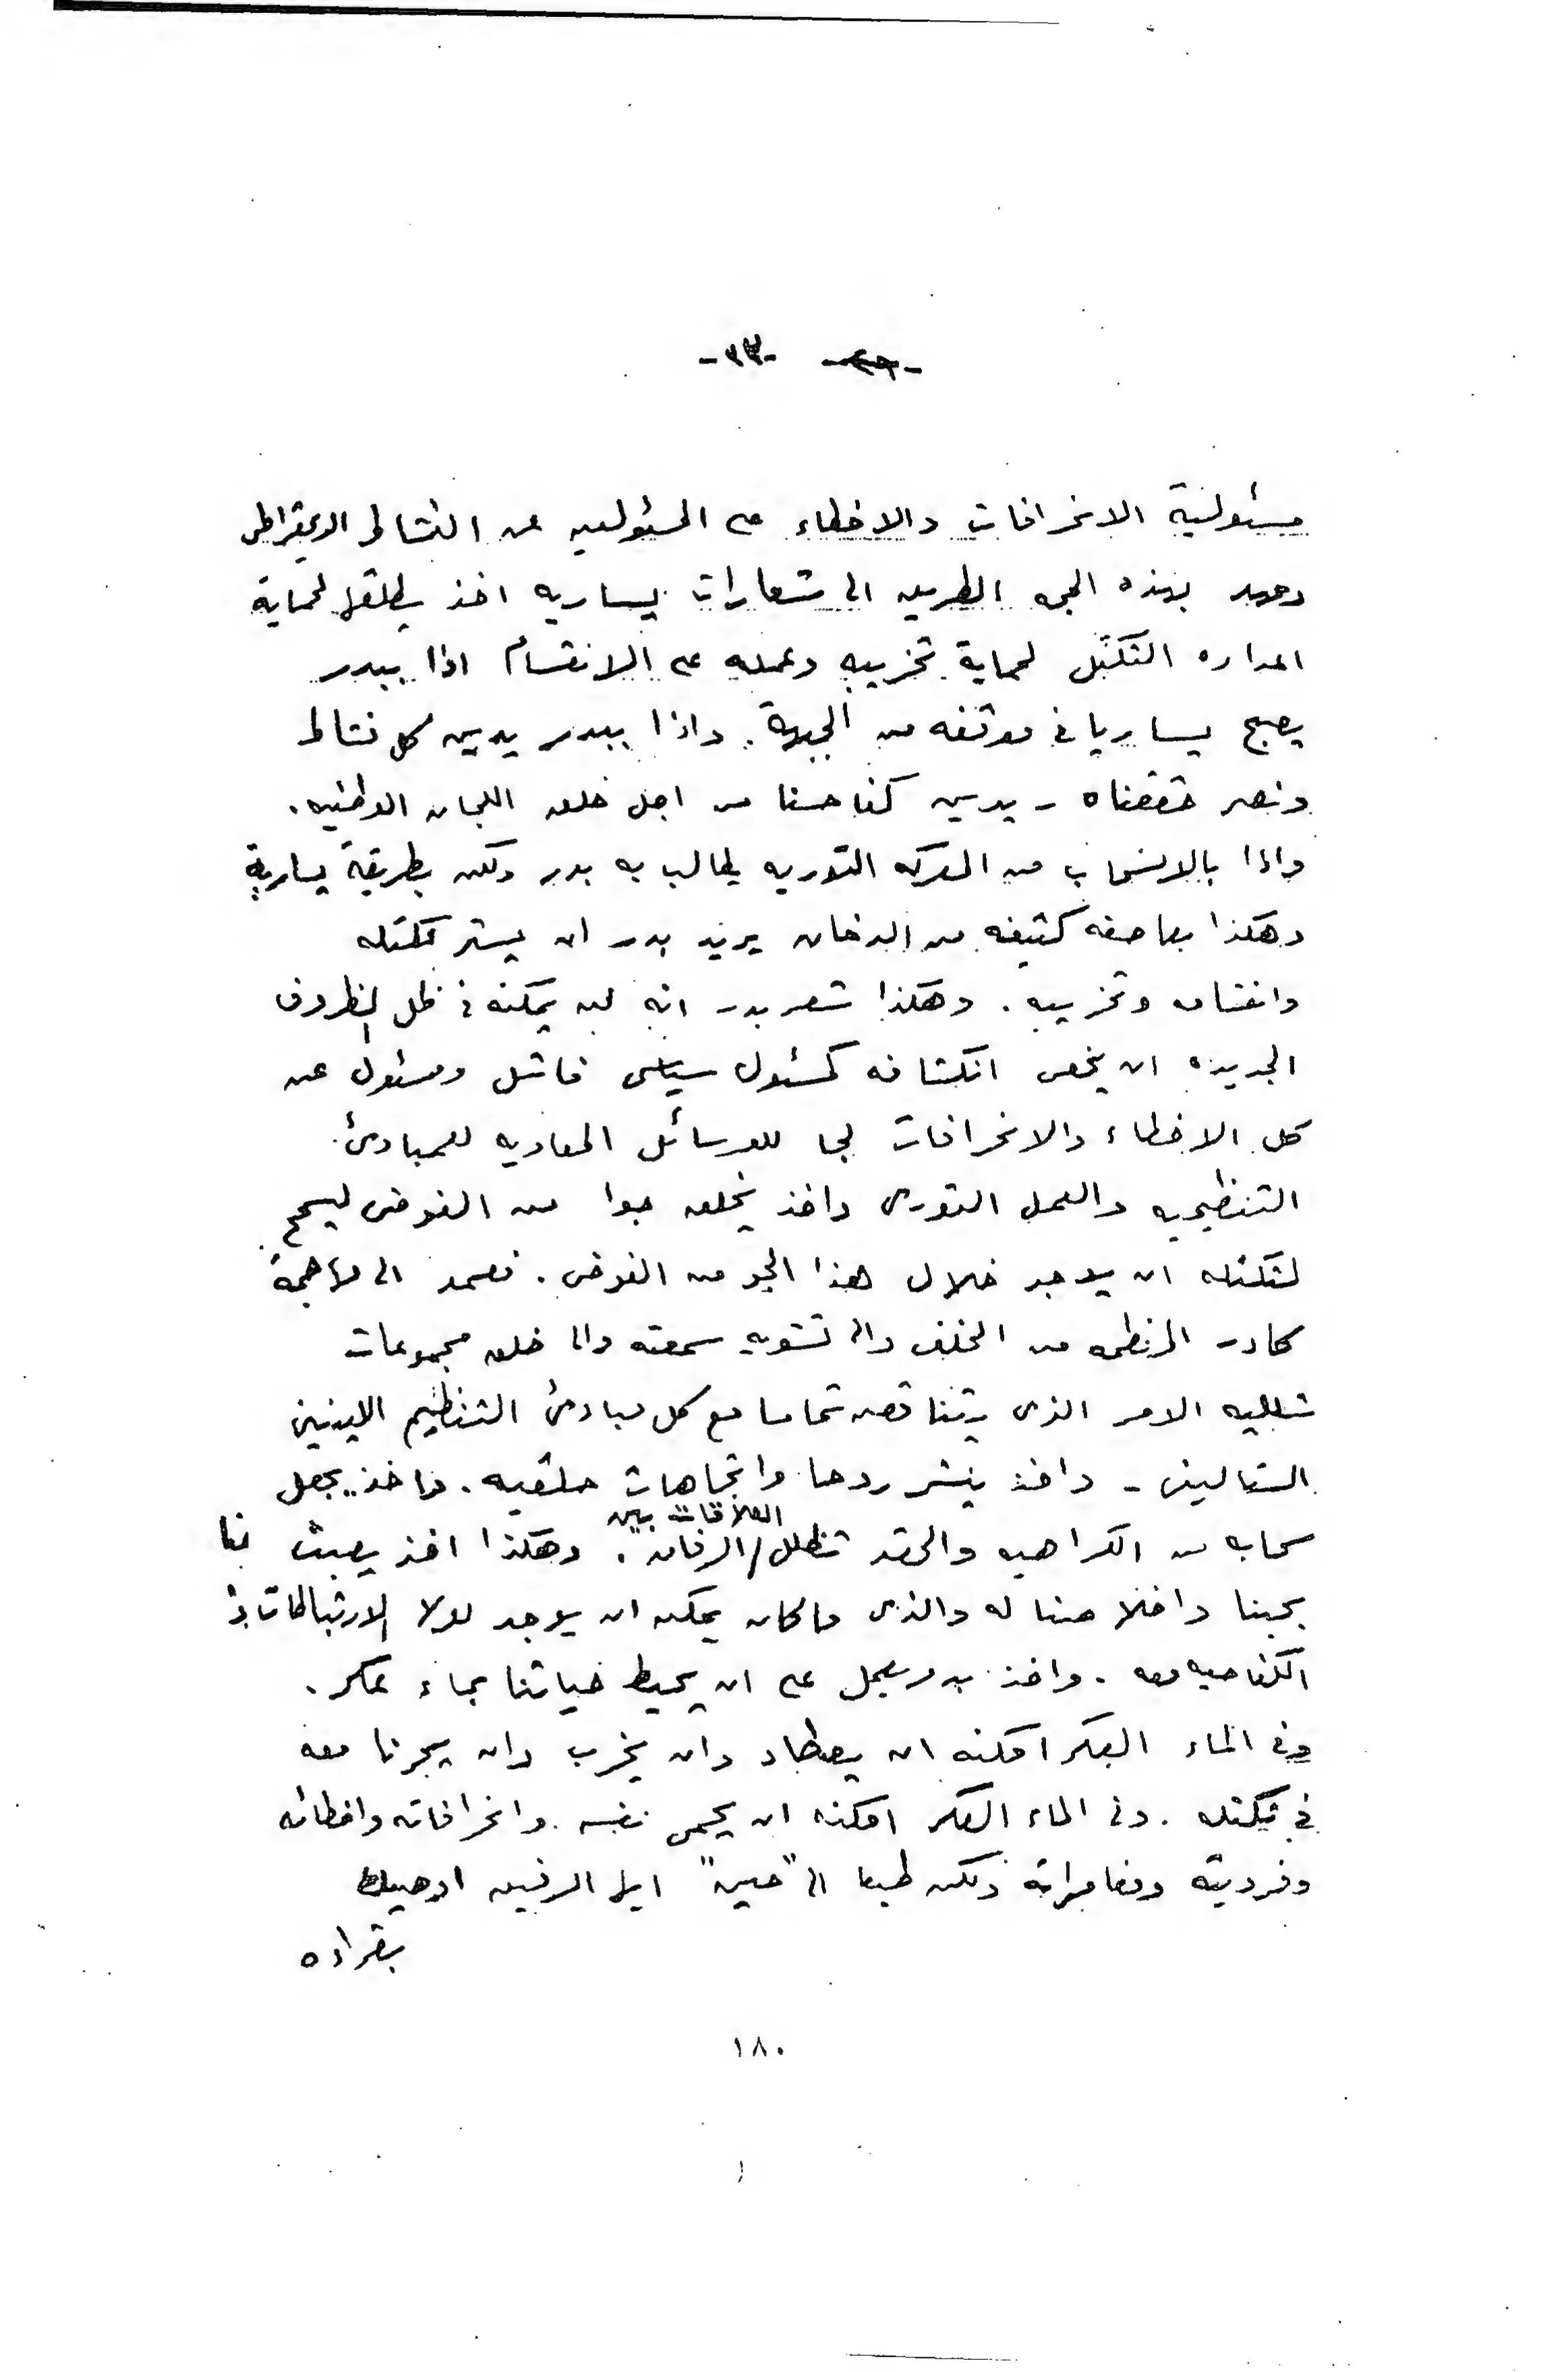 -٣٣-
مسئولية الانحرافات والاخطاء على المسئولين عن النشاط الديمقراطى
بهذه الطريق الى شعارات يساريه اخذ يطلقها لحماية
التكتل لحماية تخريبه وعمله على الانقسام اذا ببدر
يصبح يساريا فى موقفه من الجبهة. واذا ببدر يدين كل نشاط
ونصر حققناه - يدين كفاحنا من اجل خلق اللجان الوطنيه.
واذا بالانسحاب من المعركه الثوريه يطالب به بدر ولكن بطريقة يسارية
وهكذا بعاصفه كثيفه من الدخان يريد بدر ان يستر تكتله
وانقسامه وتخريبه. وهكذا شعر بدر انه لن يمكنه فى ظل الظروف
الجديده ان يخفى انكشافه كمسئول سياسى فاشل ومسئول عن
كل الاخطاء والانحرافات لجا للوسائل المعاديه للمبادئ
التنظيميه والعمل الثورى واخذ يخلق جوا من الفوضى ليسمح
لتكتله ان يوجد خلال هذا الجو من الفوضى. فعمد الى مهاجمة
كادر المنظمه من الخلف والى تشويه سمعته والى خلق مجموعات
شلليه الامر الذى يتناقض تماما مع كل مبادئ التنظيم اللينينى
الستالينى - واخذ ينشر روحا واتجاهات حلقيه. واخذ يجعل
سحابه من الكراهيه والحقد تظلل / العلاقات بين الرفاق. وهكذا اخذ يعبث بنا
بحبنا واخلاصنا له والذى ما كان يمكن ان يوجد لولا الارتباطات
الكفاحيه معه. واخذ بدر يعمل على ان يحيط حياتنا بماء عكر.
وفى الماء العكر امكنه ان يصطاد وان يخرب وان يجرنا معه
فى تكتله. وفى الماء العكر امكنه ان يحمى نفسه وانحرافاته واخطائه
وفرديته ومغامراته ولكن طبعا الى "حين" ايها الرفيق اوصيك
بقراءه
١٨٠